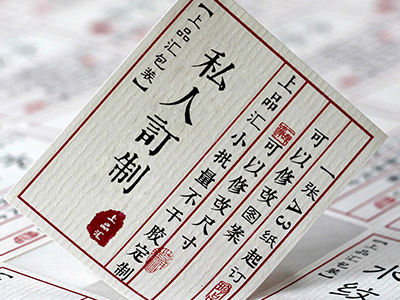 一张A3纸起订
可以修改图案
上品汇可以修改尺寸
小批量不干胶定制
私人訂制
【上品汇包装】
上品汇